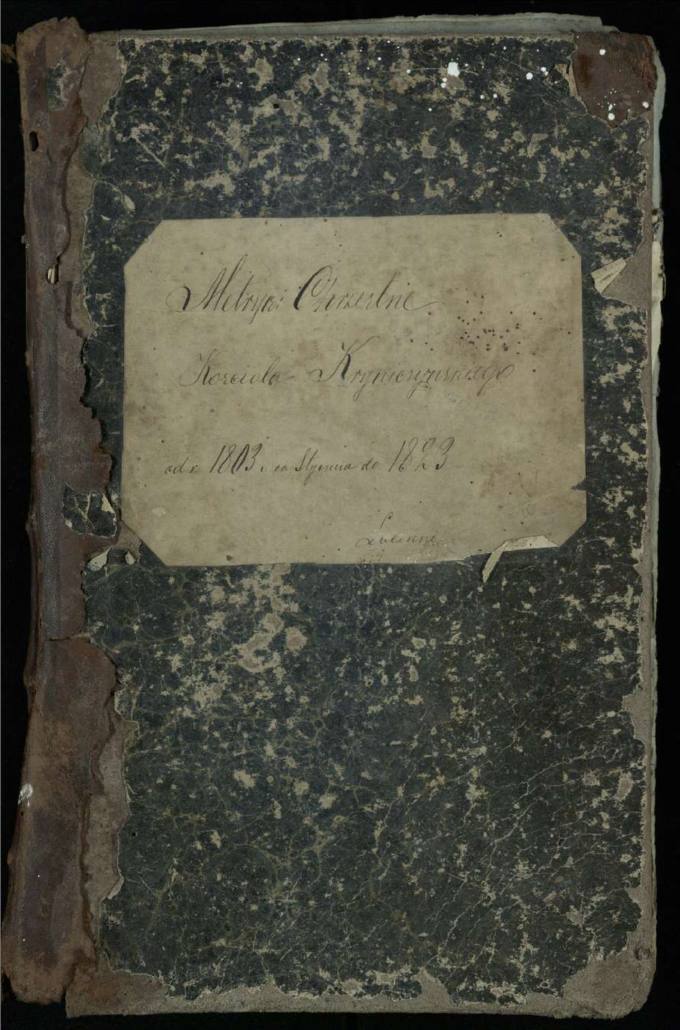 Metryki Chrzestne
Kościoła Kryniczyńskiego
od r. 1803 Stycznia do 1823